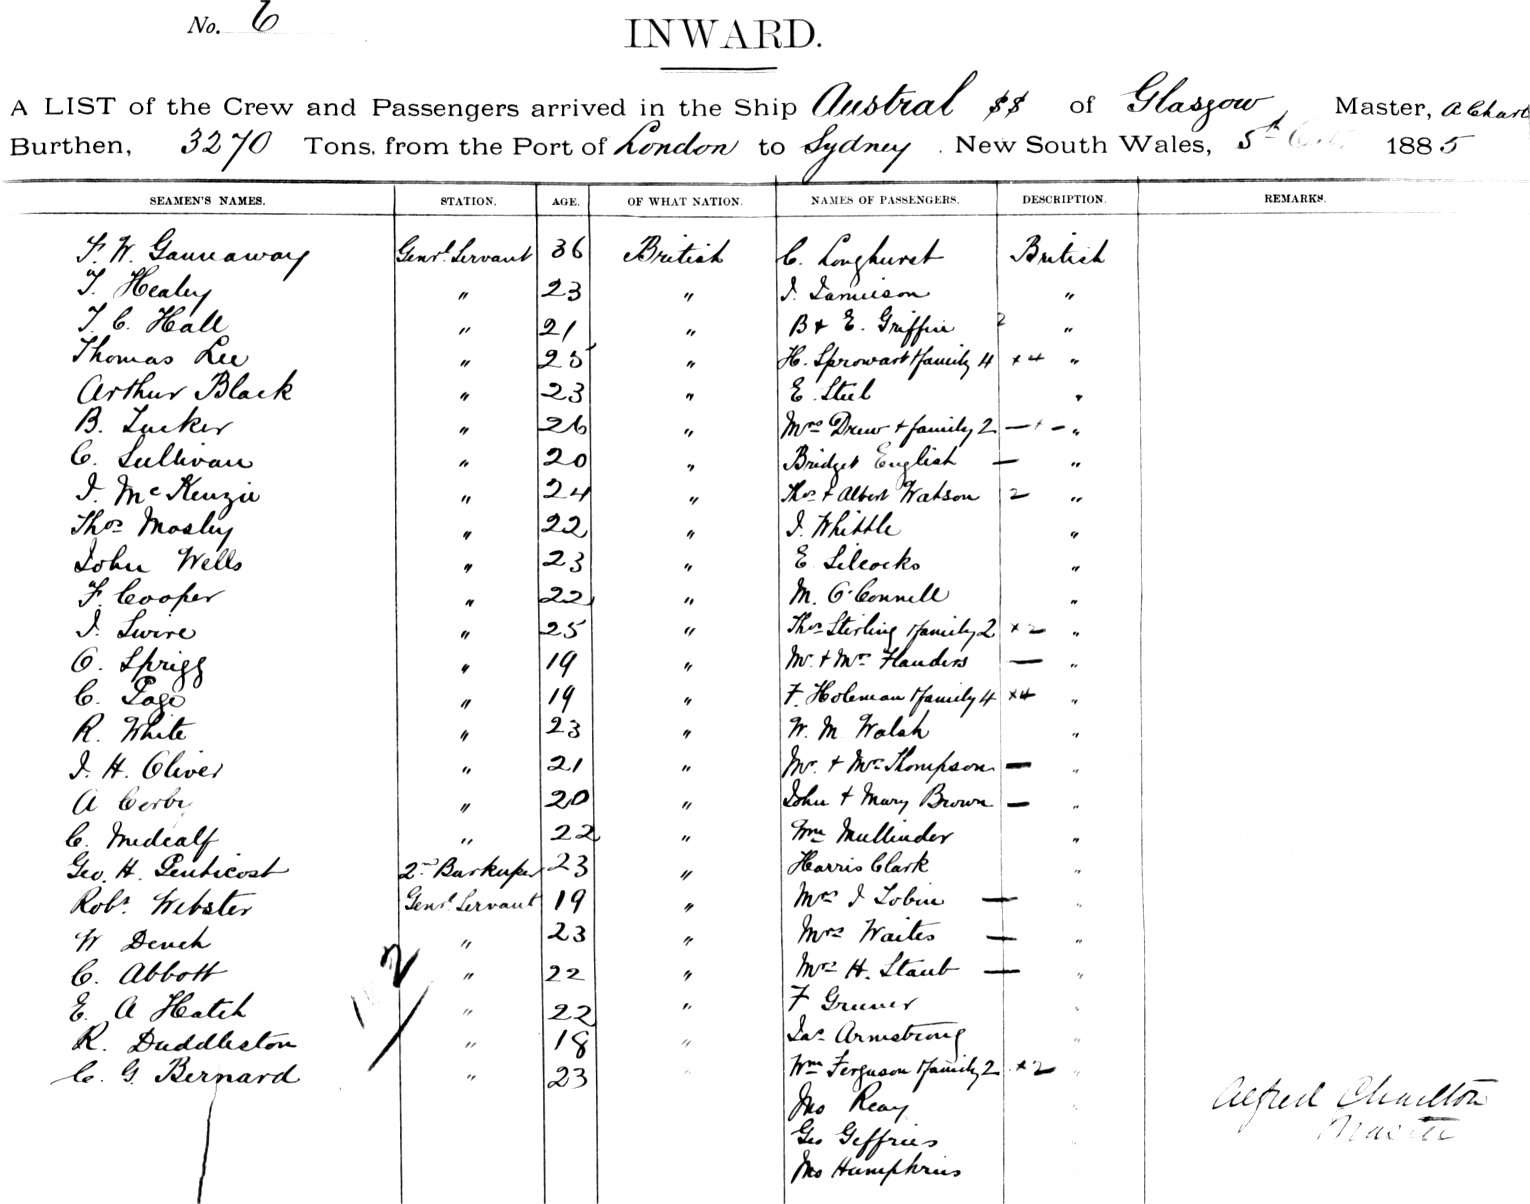 No. 6
INWARD.
A LIST of the Crew and Passengers arrived in the Ship Austral SS of Glasgow Master, A Charl
Burthen, 3270 Tons. from the Port of London to Sydney. New South Wales, 5th Oct 1885
SEAMEN'S NAMES. STATION. AGE. OF WHAT NATION. NAMES OF PASSENGERS. DESCRIPTION. REMARKS.
F. W. Gannaway Genrl. Servant 36 British C. Longhurst British
T. Healey " 23 " J. Jamieson "
T. C. Hall " 21 " B + E. Griffin 2 "
Thomas Lee " 25 " H. Sprowart + family 4 x 4 "
Arthur Black " 23 " E. Steel "
B. Tucker " 26 " Mrs Drew + family 2 — + — "
C. Sullivan " 20 " Bridget English — "
J. McKenzie " 24 " Thos + Albert Watson 2 "
Thos Mosley " 22 " J. Whittle "
John Wells " 23 " E Silcocks "
F. Cooper " 22 " M. O'Connell "
J. Swire " 25 " Thos Stirling + family 2 x 2 "
O. Sprigg " 19 " Mr. + Mrs Flanders — "
C. Page " 19 " F. Holeman + family 4 x 4 "
R. White " 23 " W. M. Walsh "
J. H. Oliver " 21 " Mr. + Mrs Thompson — "
A Corby " 20 " John + Mary Brown — "
C. Medcalf " 22 " Wm Mullinder "
Geo. H. Penticost 2nd Barkeeper 23 " Harris Clark "
Robt. Webster Genrl. Servant 19 " Mrs J Tobin — "
W Dench " 23 " Mrs Waites — "
C. Abbott " 22 " Mrs H. Staub — "
E. A Hatch " 22 " F Gruner "
R. Duddleston " 18 " Jas. Armstrong "
C. G. Bernard " 23 " Wm Ferguson + family 2 x 2 "
Jno Reay "
Geo Geffries "
Jno Humphries
2
Alfred Charlton
Master